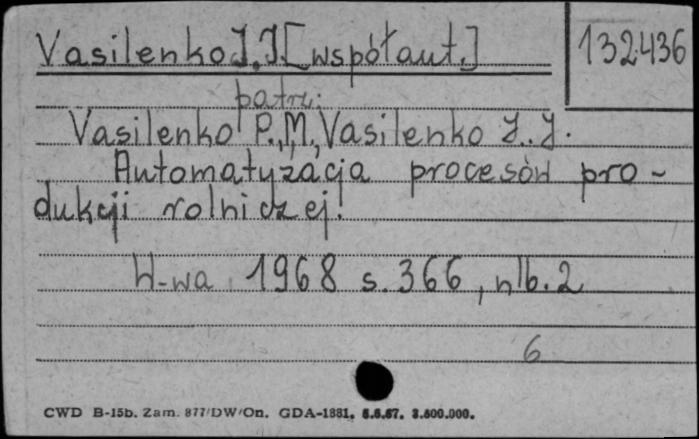 Vasilenko I.I. [współaut.]
132436
patrz:
Vasilenko P.M., Vasilenko I.I.
Automatyzacja procesów pro-
dukcji rolniczej.
W-wa 1968 s. 366, nlb. 2
6
CWD B-15b. Zam. 877/DW/On. GDA-1881. 6.6.67. 3.600.000.